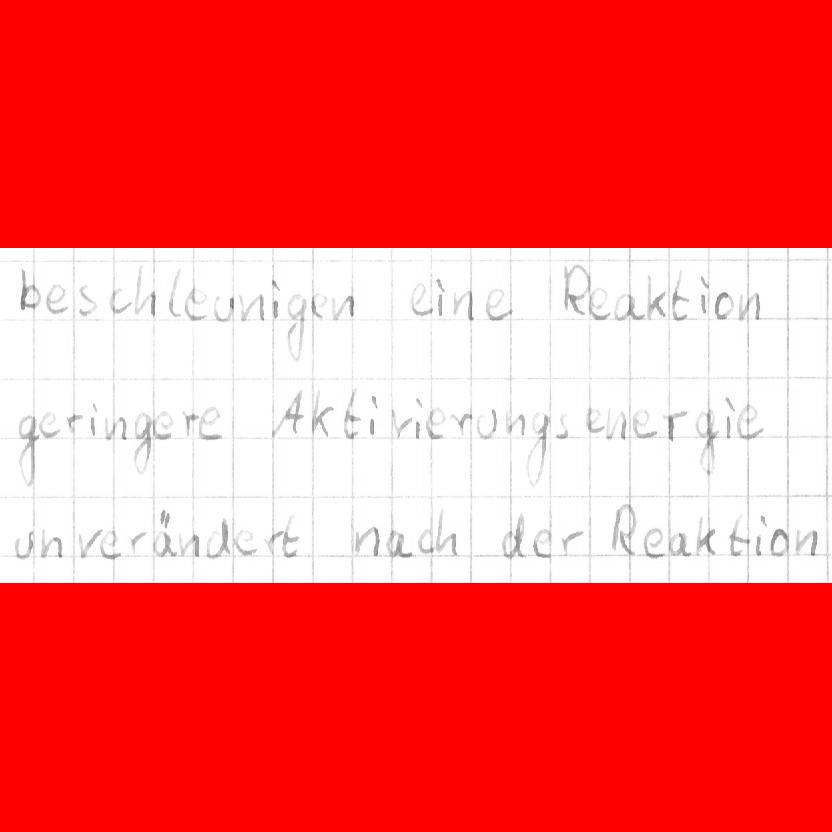 beschleunigen eine Reaktion
geringere Aktivierungsenergie
unverändert nach der Reaktion